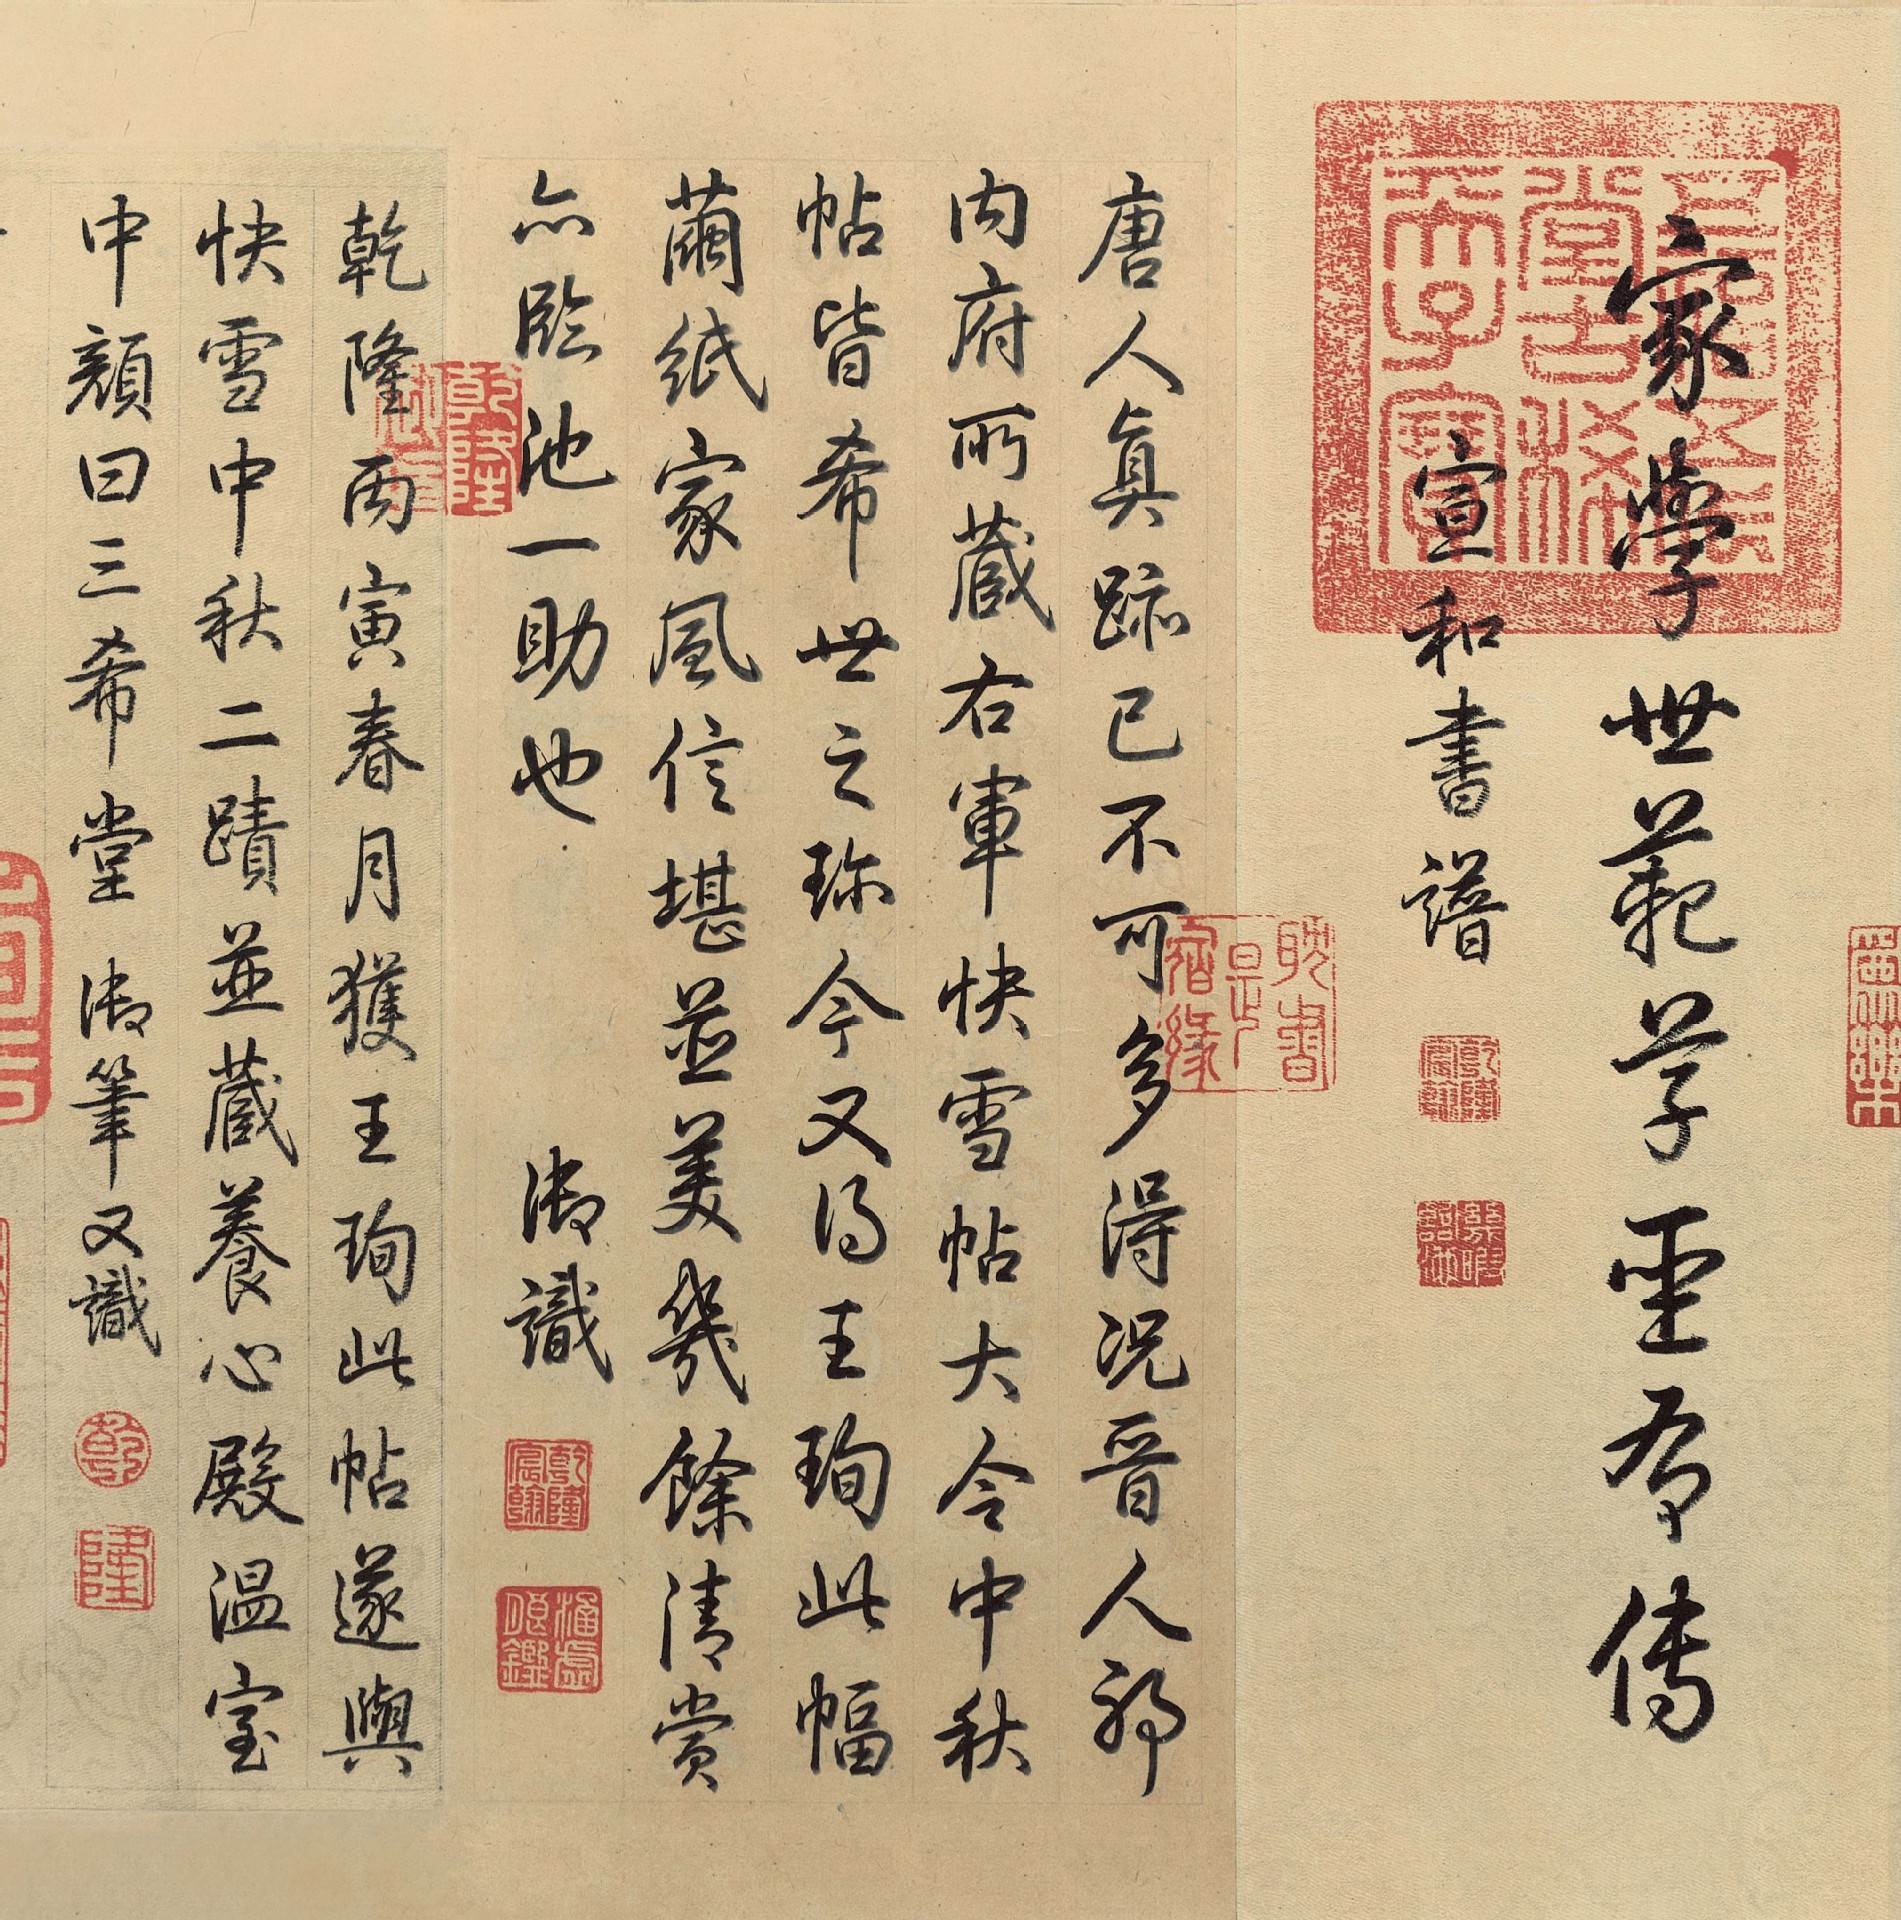 家學世範草聖有傳
宣和書譜
唐人真跡已不可多得況晉人耶
内府所藏右軍快雪帖大令中秋
帖皆希世之珎今又得王珣此幅
繭紙家風信堪並美幾餘清賞
亦臨池一助也 御識
乾隆丙寅春月獲王珣此帖遂與
快雪中秋二蹟並藏養心殿溫室
中顏曰三希堂 御筆又識
乾隆宸翰
乾隆宸翰
乾
隆